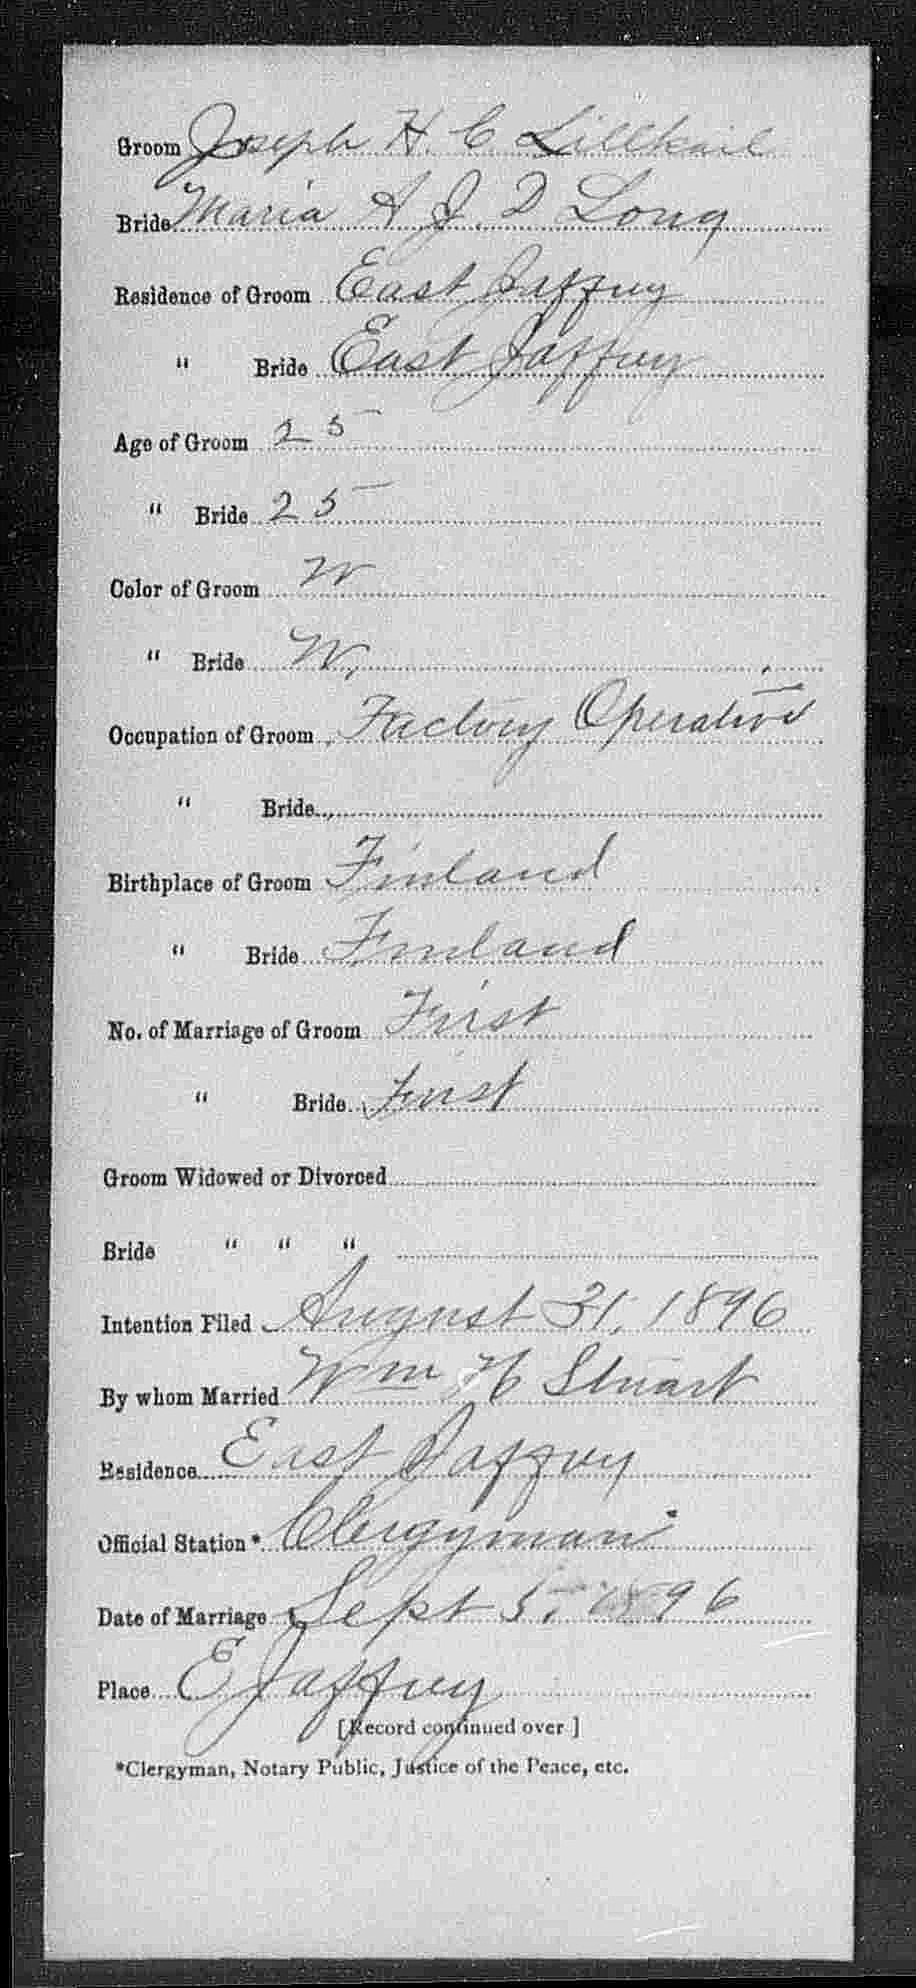 Groom Joseph H. C Lillkail
Bride Maria A J. D Long
Residence of Groom East Jaffrey
" Bride East Jaffrey
Age of Groom 25
" Bride 25
Color of Groom W
" Bride W.
Occupation of Groom Factory Operative
" Bride
Birthplace of Groom Finland
" Bride Finland
No. of Marriage of Groom First
" Bride First
Groom Widowed or Divorced
Bride " " "
Intention Filed August 31, 1896
By whom Married Wm H Stuart
Residence East Jaffrey
Official Station* Clergyman
Date of Marriage Sept 5, 1896
Place E Jaffrey
[Record continued over]
*Clergyman, Notary Public, Justice of the Peace, etc.